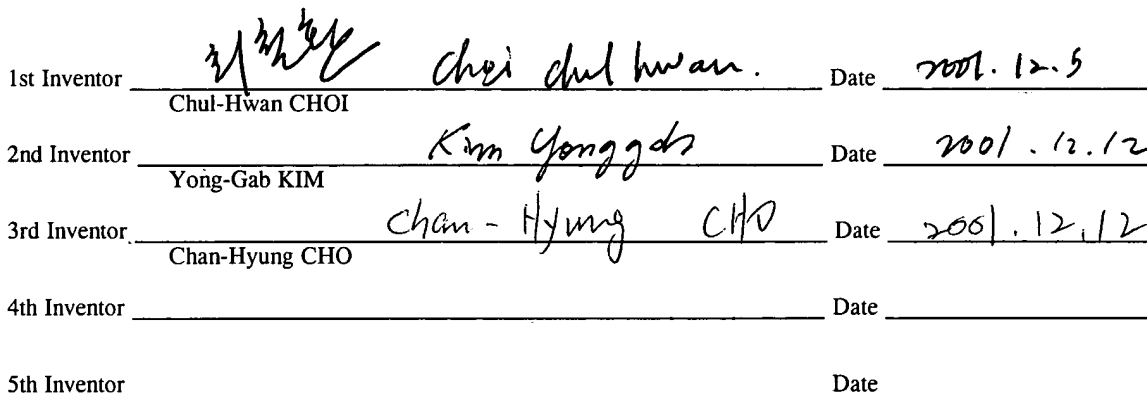 1st Inventor 최철환 Choi chul hwan. Date 2001. 12. 5
Chul-Hwan CHOI
2nd Inventor Kim Yonggab Date 2001. 12. 12
Yong-Gab KIM
3rd Inventor Chan-Hyung CHO Date 2001. 12. 12
Chan-Hyung CHO
4th Inventor Date
5th Inventor Date